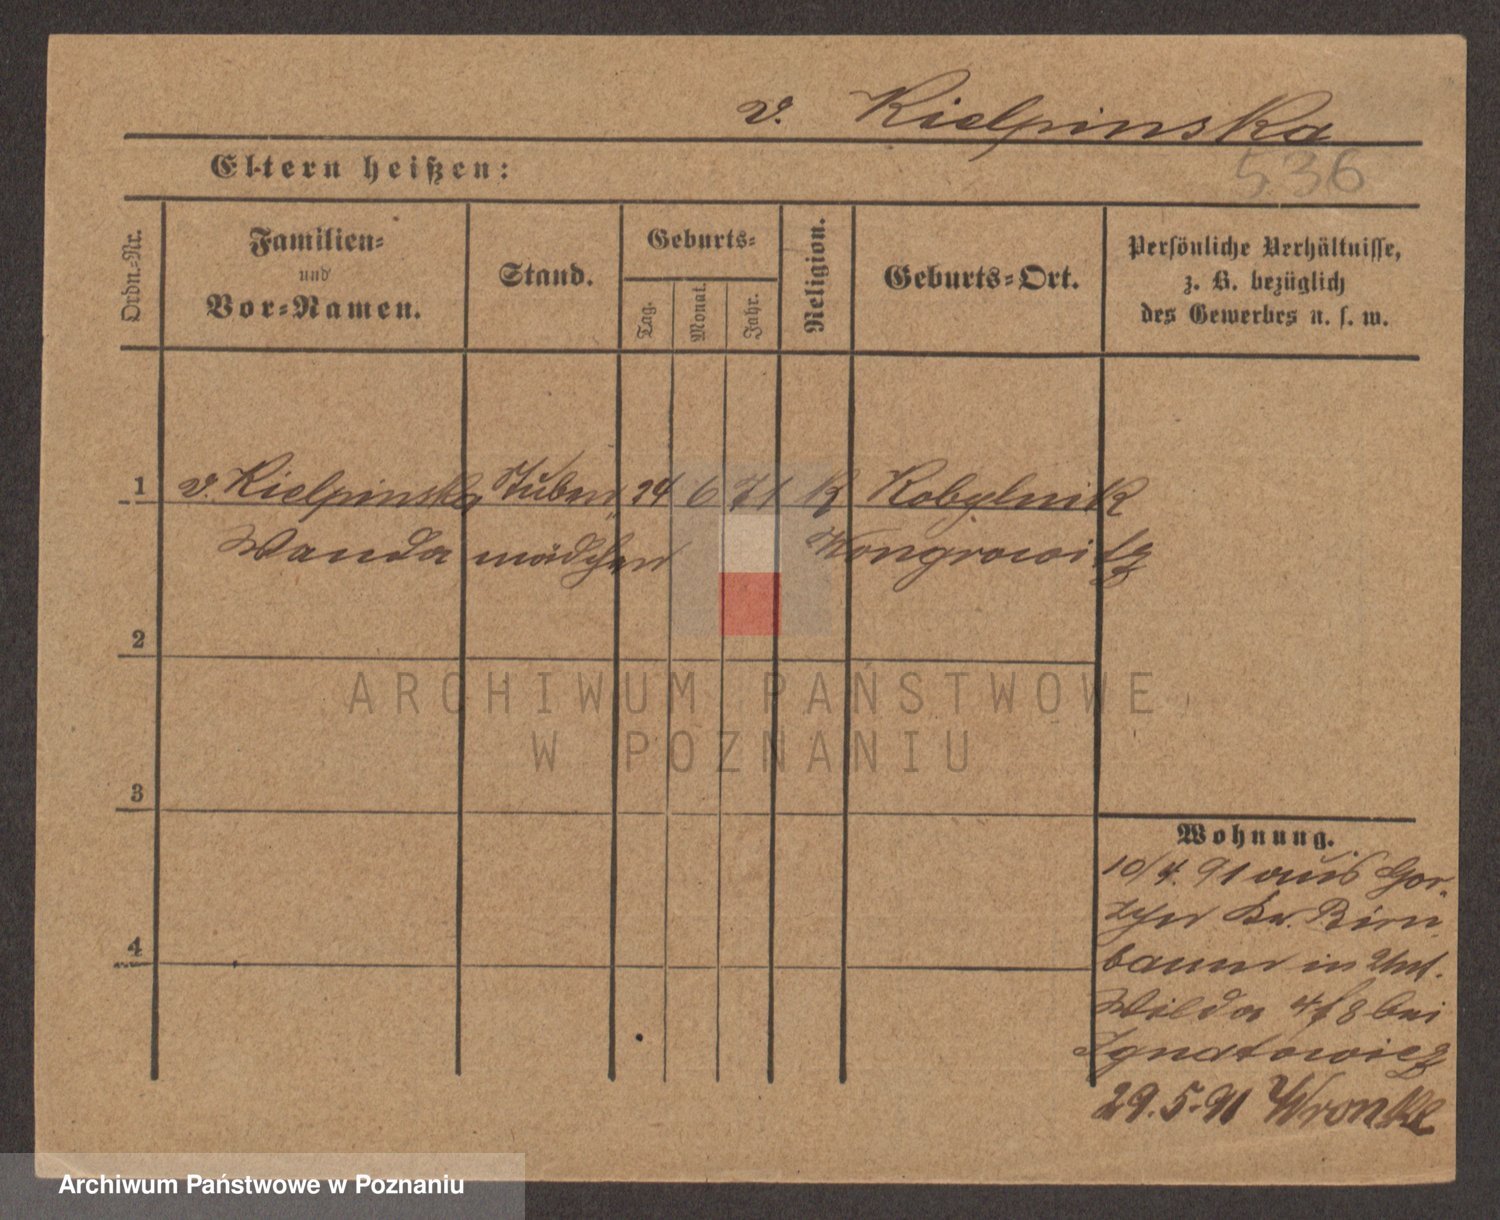 v. Kielpinska
536
Eltern heißen:
Ordn.-Nr.
Familien-
und
Vor-Namen.
Stand.
Geburts-
Tag.
Monat.
Jahr.
Religion.
Geburts-Ort.
Persönliche Verhältnisse,
z. B. bezüglich
des Gewerbes u. s. w.
1 v. Kielpinska Stuben 24 6 71 K Kobylnik
Wanda mädchen Wongrowitz
2
3
4
Wohnung.
10/4. 91 aus Gor-
Kr. Birn-
baum in Unt.
Wilda 4f8 bei
Ignatowicz
29.5.91 Wronke
ARCHIWUM PAŃSTWOWE
W POZNANIU
Archiwum Państwowe w Poznaniu